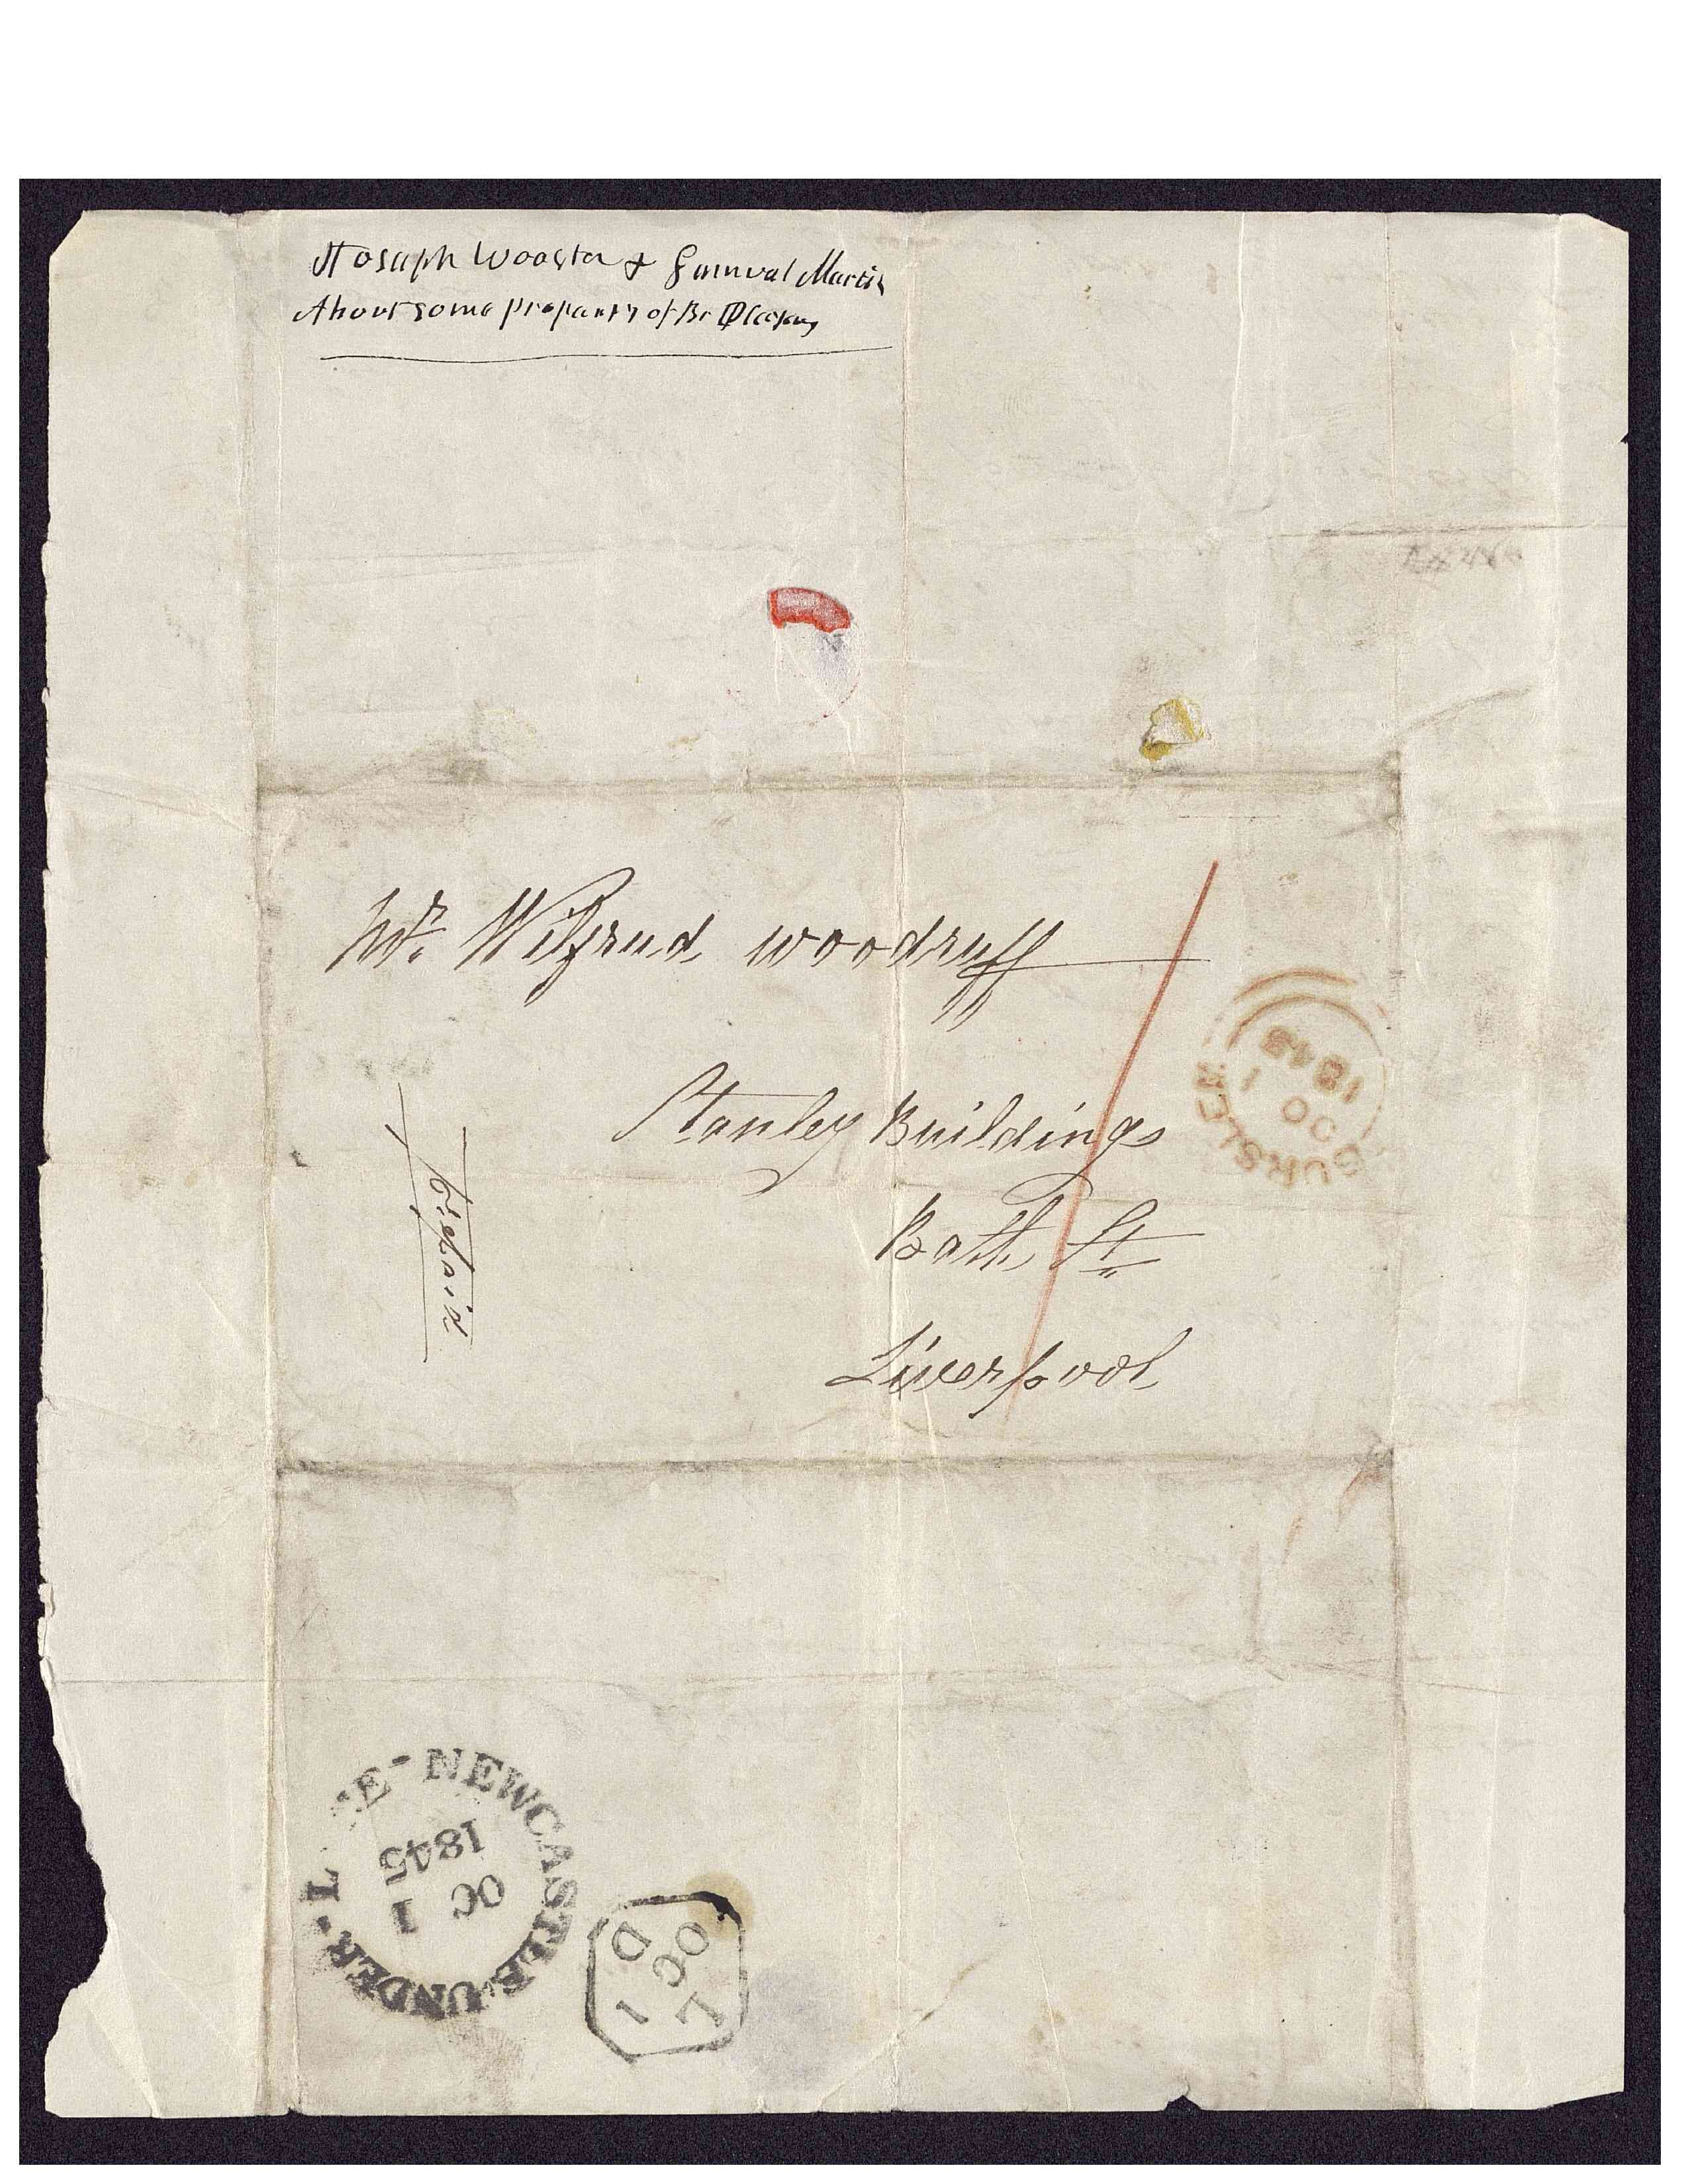 Joseph Wooster & Samuel Martin
About some property of Br
Mr. Wilfrud woodruff
Stanley Buildings
Bath St
Liverpool
BURSLEM
OC 1
1845
NEWCASTLE UNDER-L NE-
OC 1
1845
L
OC 1
D